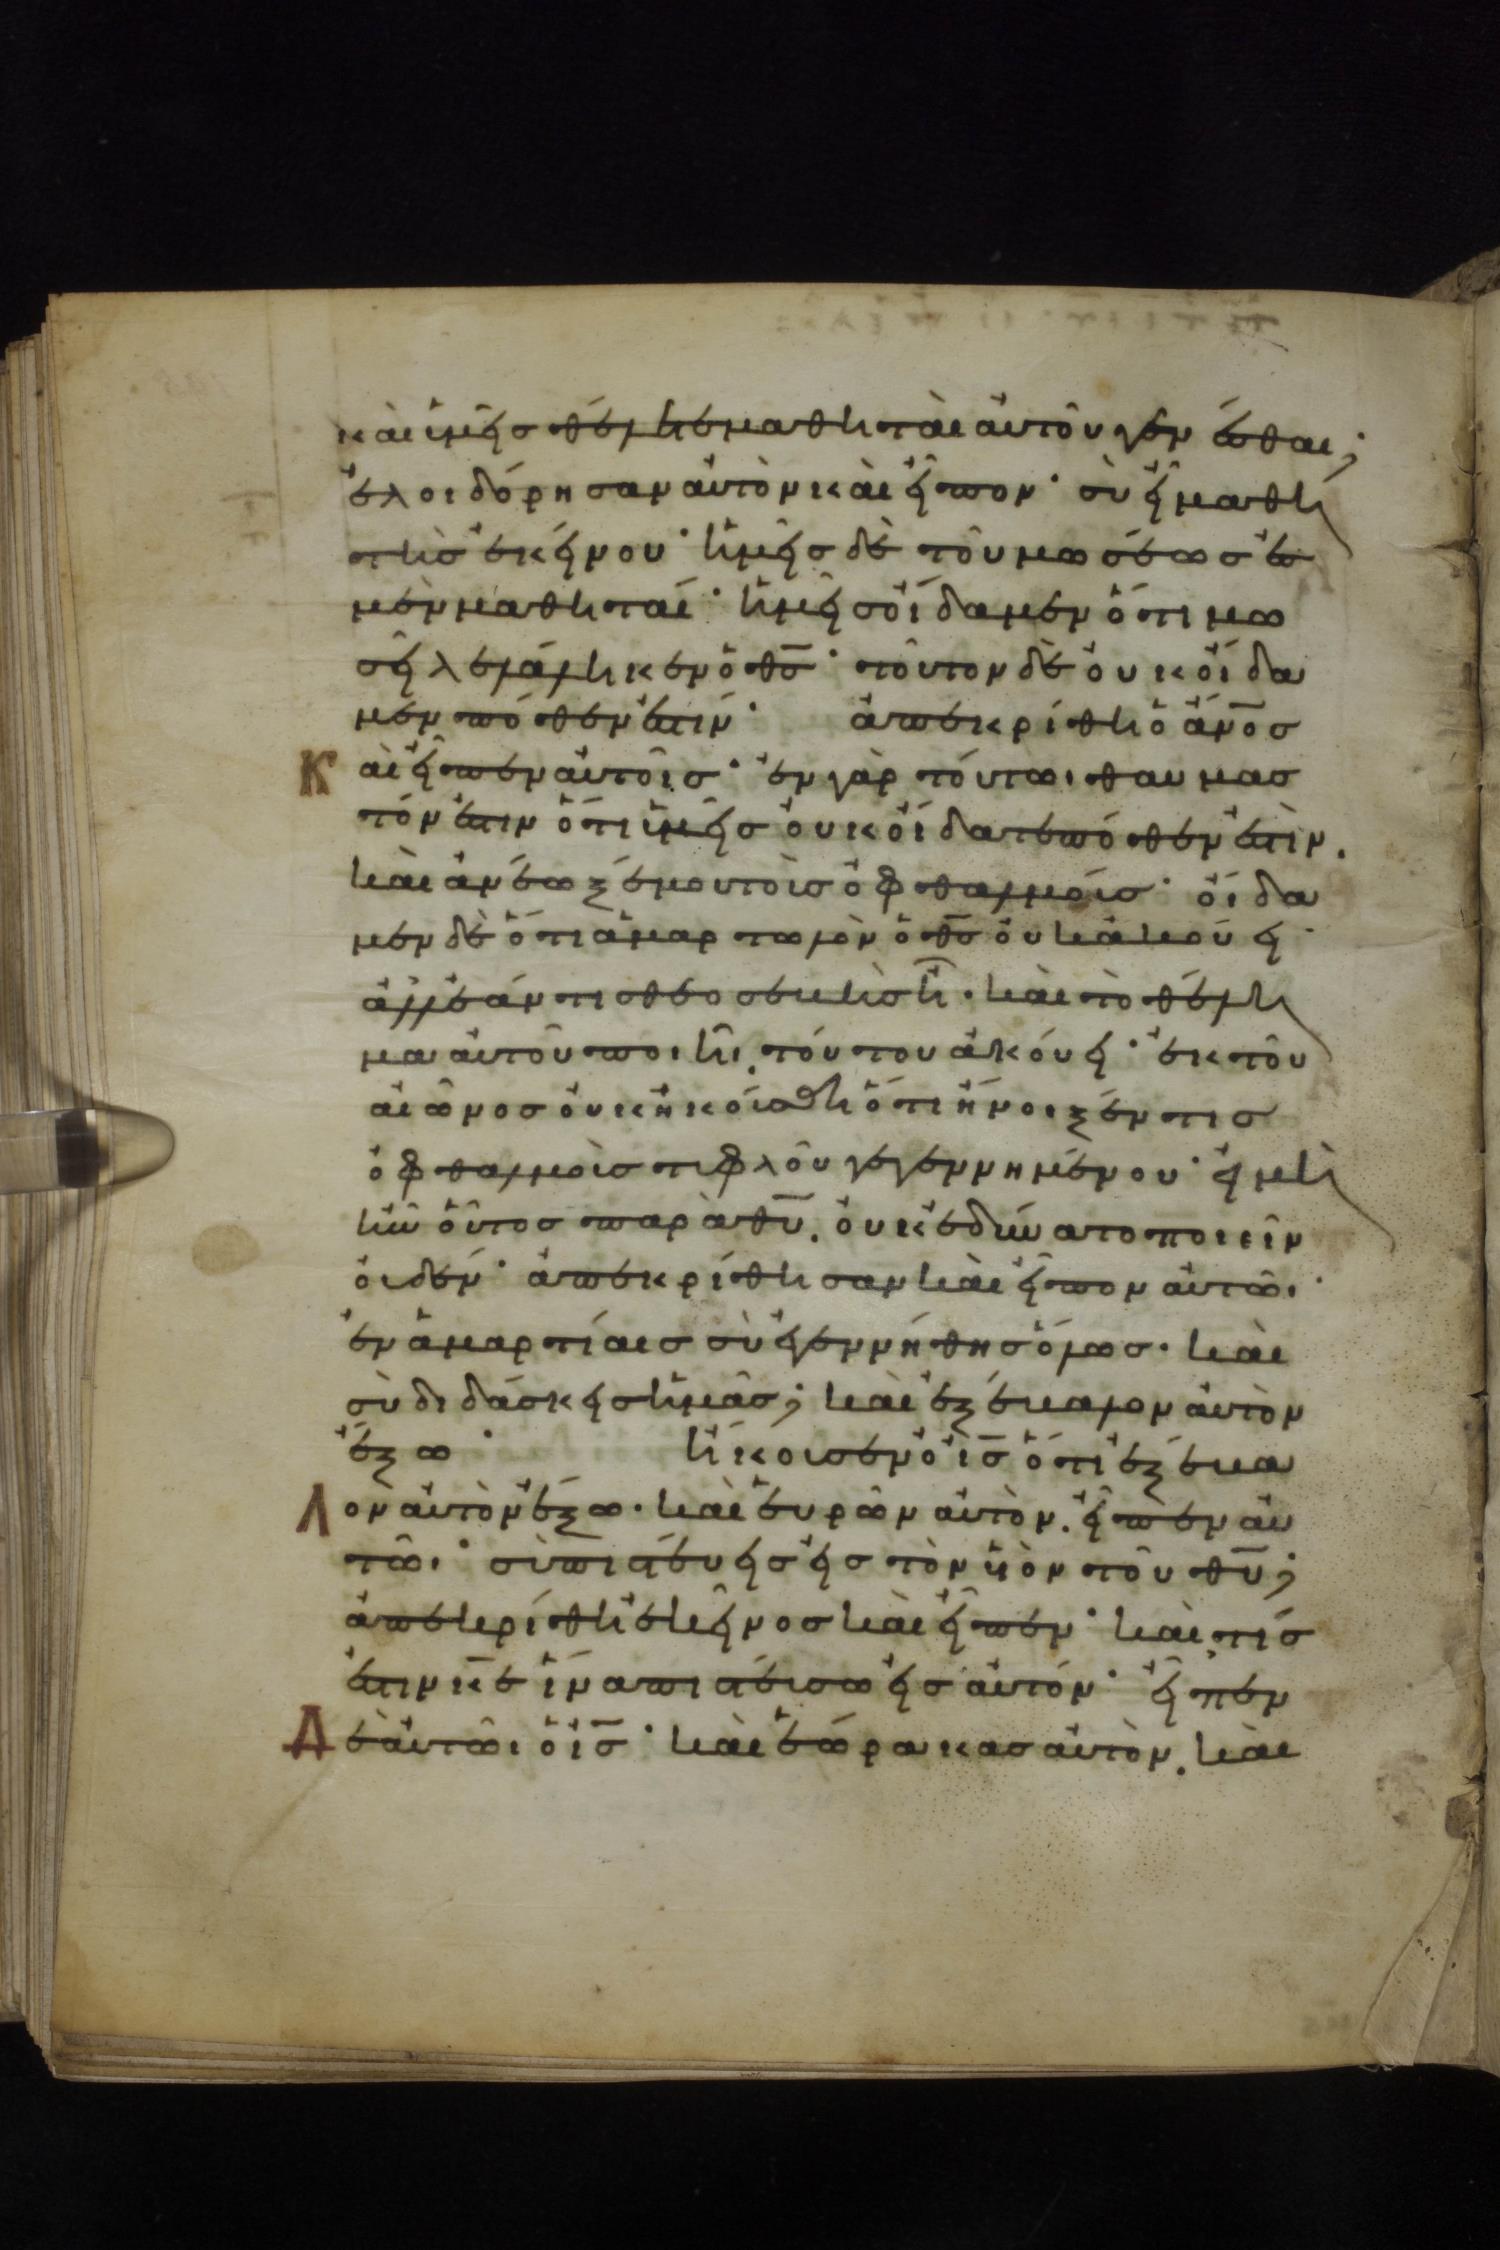 καὶ ὑμεῖς θέλετε μαθηταὶ αὐτοῦ γενέσθαι;
ἐλοιδόρησαν αὐτὸν καὶ εἶπον· σὺ εἶ μαθη
τὴς ἐκείνου· ἡμεῖς δὲ τοῦ μωσέως ἐσ
μὲν μαθηταί· ἡμεῖς οἴδαμεν ὅτι μω
σεῖ λελάληκεν ὁ θ̅σ̅· τοῦτον δὲ οὐκ οἴδα
μεν πόθεν ἐστίν· ἀπεκρίθη ὁ ἄν̅ο̅σ
Καὶ εἶπεν αὐτοῖς· ἐν γὰρ τούτωι θαυμασ
τόν ἐστιν ὅτι ὑμεῖς οὐκ οἴδατε πόθεν ἐστὶν.
καὶ ἀνέωξέ μου τοὺς ὀφθαλμούς· οἴδα
μεν δὲ ὅτι ἁμαρτωλὸν ὁ θ̅σ̅ οὐκ ἀκούει·
ἀλλ' ἐάν τις θεοσεβὴς ἦ. καὶ τὸ θέλη
μα αὐτοῦ ποιῆι, τούτου ἀκούει· ἐκ τοῦ
αἰῶνος οὐκ ἠκούσθη ὅτι ἤνοιξέν τις
ὀφθαλμοὺς τυφλοῦ γεγεννημένου· εἰ μὴ
ἦν οὗτος παρὰ θ̅υ̅. οὐκ ἐδύνατο ποιεῖν
οὐδέν· ἀπεκρίθησαν καὶ εἶπον αὐτῶι·
ἐν ἁμαρτίαις σὺ ἐγεννήθης ὅλως. καὶ
σὺ διδάσκεις ἡμᾶς; καὶ ἐξέβαλον αὐτὸν
ἔξω· Ἤκουσεν ὁ ι̅σ̅ ὅτι ἐξέβα
Λον αὐτὸν ἔξω. καὶ εὑρὼν αὐτὸν. εἶπεν αὐ
τῶι· σὺ πιστεύεις εἰς τὸν υἱὸν τοῦ θ̅υ̅;
ἀπεκρίθη ἐκεῖνος καὶ εἶπεν· καὶ τίς
ἐστιν κ̅ε̅ ἵνα πιστεύσω εἰς αὐτόν· εἶπεν
Δὲ αὐτῶι ὁ ι̅σ̅· καὶ ἑώρακας αὐτὸν. καὶ